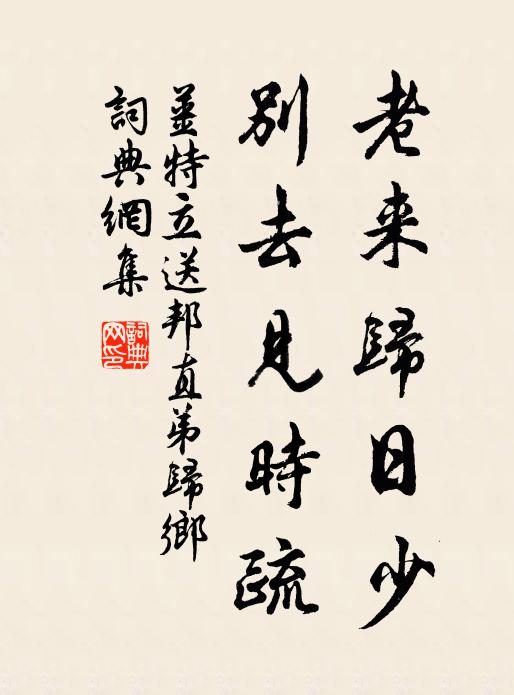 老来歸日少
別去見時疏
姜特立送邦直弟歸鄉
詞典網集
詞典
网印